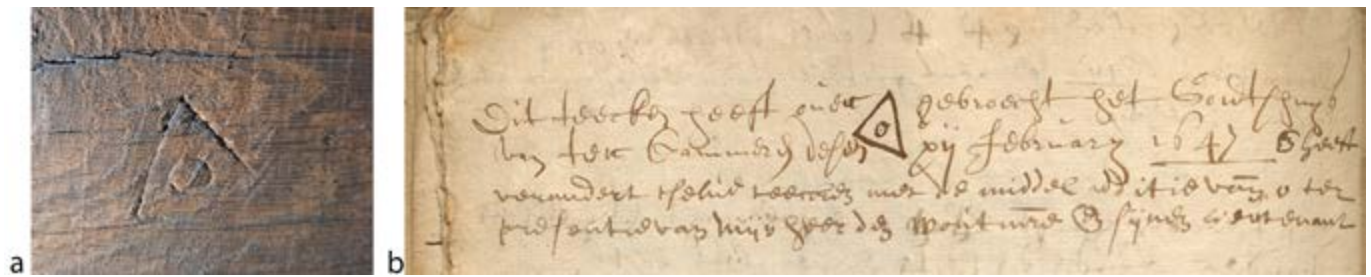 a
b
Dit teecken heeft over gebroecht het Godtshuys
van ter Cameren desen xij february 1647 heeft
verandert tselve teecken met de middel van o ter
presentie van mijn heer den woutmre synen lieutenant